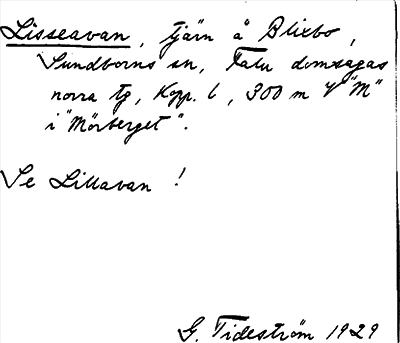 Lisseavan, tjärn å Blixbo,
Sundborns sn, Falu domsagas
norra tg, Kopp. l, 300 m V "M"
i "Mörberget".
Se Lillavan !
G. Tideström 1929